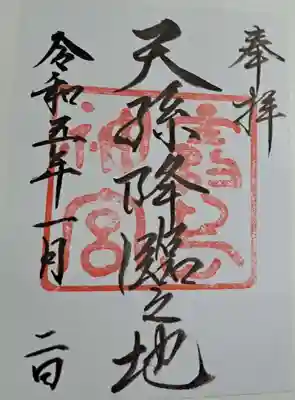 奉拝
天孫降臨之地
神宮
令和五年一月二日